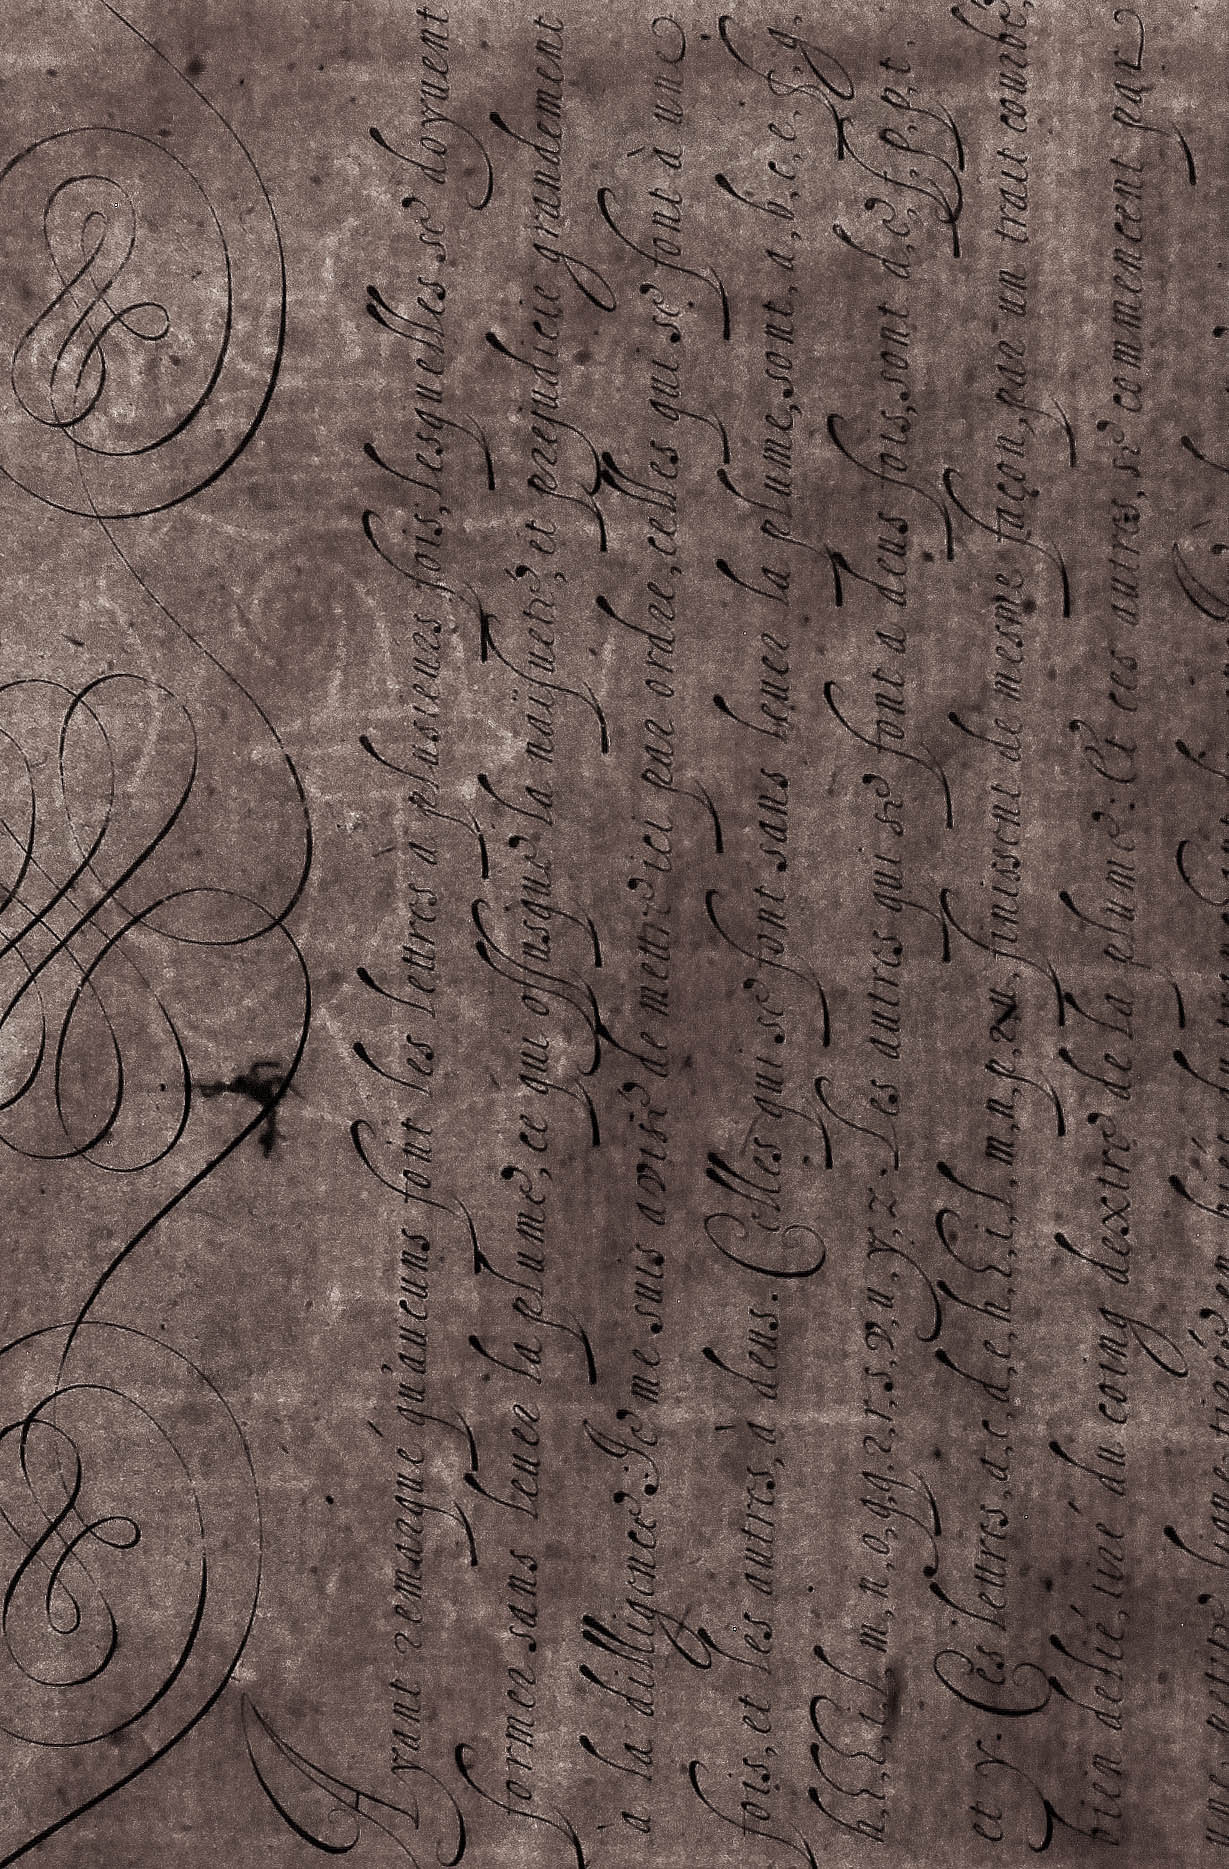 Ayant remarqué qu'aucuns font les lettres a plusieurs fois, lesquelles se doyuent
former sans leuer la plume, ce qui offusque la naïfueté, et prejudicie grandement
à la dilligence. Je me suis advisé de mettre ici par ordre, celles qui se font à une
fois, et les autres, à deus. Celles qui se font sans leuer la plume, sont, a, b, c, e, g,
h, l, i, l m, n, o, g, q, r, r, s, v, u, y, z. Les autres qui se font a deus fois, sont d, e, f, p, p, t,
et y. Ces lettres, a, c, d, e, h, i, l, m, n, p, r, u, finissent de mesme façon, par un trait courbé,
bien delié, tiré du coing dextre de la plume: Et ces autres, se commencent par